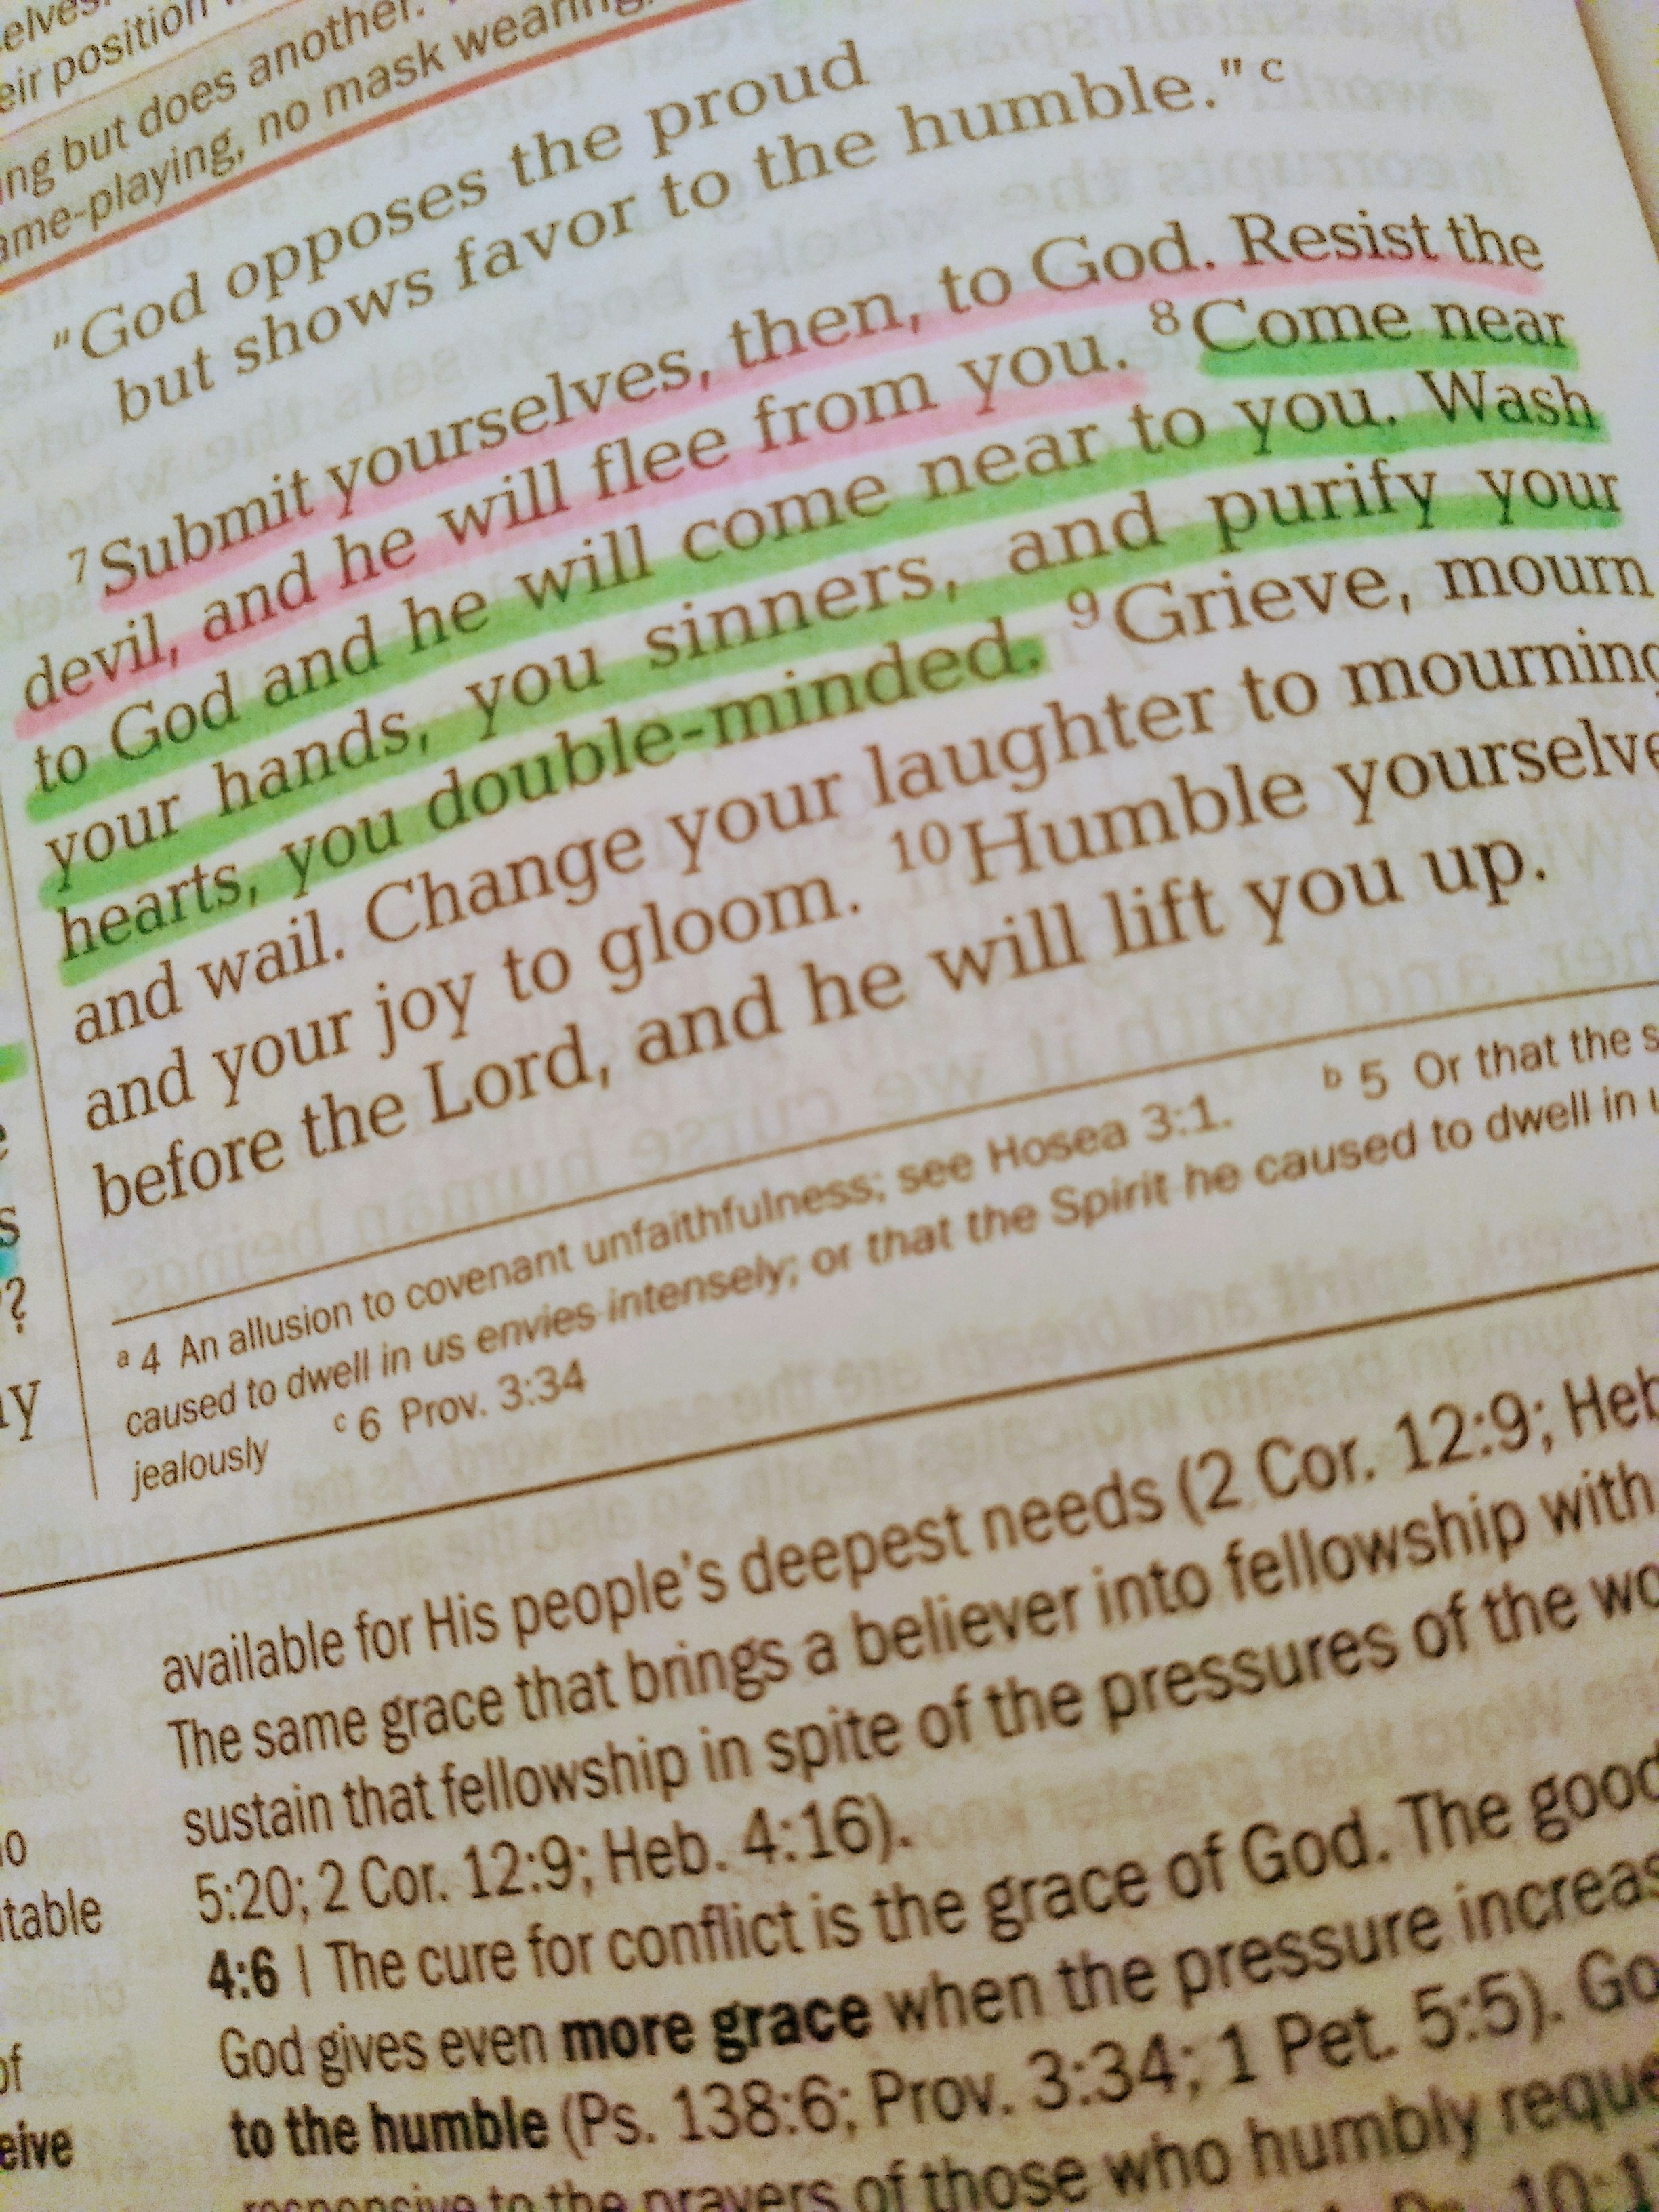 eir position
ng but does another.
ame-playing, no mask wearing,
"God opposes the proud
but shows favor to the humble."c
7Submit yourselves, then, to God. Resist the
devil, and he will flee from you. 8Come near
to God and he will come near to you. Wash
your hands, you sinners, and purify your
hearts, you double-minded. 9Grieve, mourn
and wail. Change your laughter to mourning
and your joy to gloom. 10Humble yourselve
before the Lord, and he will lift you up.
a 4 An allusion to covenant unfaithfulness; see Hosea 3:1. b 5 Or that the s
caused to dwell in us envies intensely; or that the Spirit he caused to dwell in u
jealously c 6 Prov. 3:34
available for His people's deepest needs (2 Cor. 12:9; Heb
The same grace that brings a believer into fellowship with
sustain that fellowship in spite of the pressures of the wo
5:20; 2 Cor. 12:9; Heb. 4:16).
4:6 | The cure for conflict is the grace of God. The good
God gives even more grace when the pressure increas
to the humble (Ps. 138:6; Prov. 3:34; 1 Pet. 5:5). Go
responsive to the prayers of those who humbly reque
s
?
ay
o
table
of
eive